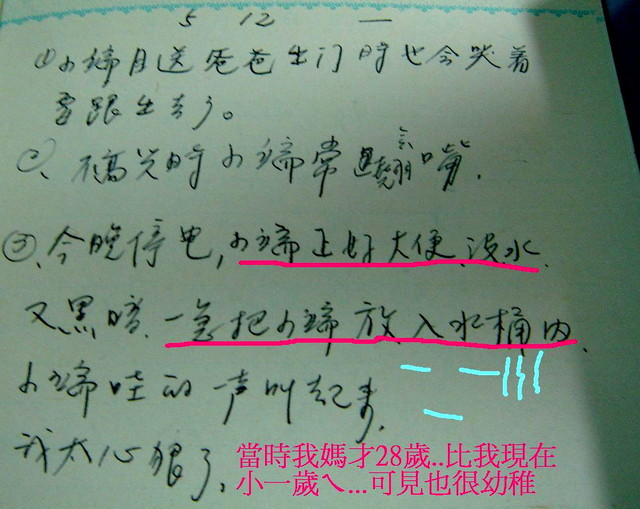 5 12 一
①小端目送爸爸出门時也会哭着
要跟出去了。
②、不高兴時小端常翹嘴.
③、今晚停电,小端正好大便、沒水
又黑暗、一急把小端放入水桶内、
小端哇的一声叫起來,
我太心狠了。
當時我媽才28歲..比我現在
小一歲ㄟ...可見也很幼稚